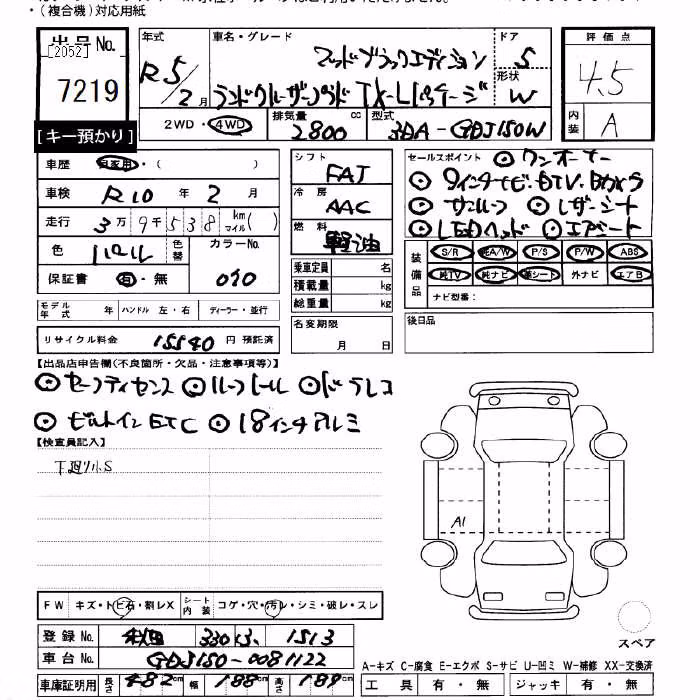 ・（複合機）対応用紙
出品No.
[2052]
7219
[キー預かり]
年式
R5/2月
車名・グレード
マットブラックエディション
ランドクルーザープラド TX-Lパッケージ
ドア
5
形状
W
評価点
4.5
内装
A
2WD・4WD
排気量
2800
cc
型式
3DA-GDJ150W
車歴
自家用・（ ）
車検
R10年2月
走行
3万9千538
km
マイル
( )
色
パール
色替
カラーNo.
070
保証書
有・無
モデル年式
年
ハンドル 左・右
ディーラー・並行
リサイクル料金
15540
円 預託済
シフト
FAT
冷房
AAC
燃料
軽油
乗車定員
名
積載量
kg
総重量
kg
名変期限
月 日
セールスポイント
◎ワンオーナー
◎9インチナビ・DTV・Bカメラ
◎サンルーフ ◎レザーシート
◎LEDヘッド ◎エアシート
装備品
S/R 純A/W P/S P/W ABS
純TV 純ナビ 革シート 外ナビ エアB
ナビ型番：
後日品
【出品店申告欄(不良箇所・欠品・注意事項等)】
◎セーフティセンス ◎ルーフレール ◎ドラレコ
◎ビルトインETC ◎18インチアルミ
【検査員記入】
下廻り小S
A1
FW
キズ・トビ石・割レX
シート内装
コゲ・穴・汚レ・シミ・破レ・スレ
登録No.
330
1513
車台No.
GDJ150-0081122
車庫証明用
長さ
482cm
幅
188cm
高さ
189cm
スペア
A-キズ C-腐食 E-エクボ S-サビ U-凹ミ W-補修 XX-交換済
工具 有・無
ジャッキ 有・無